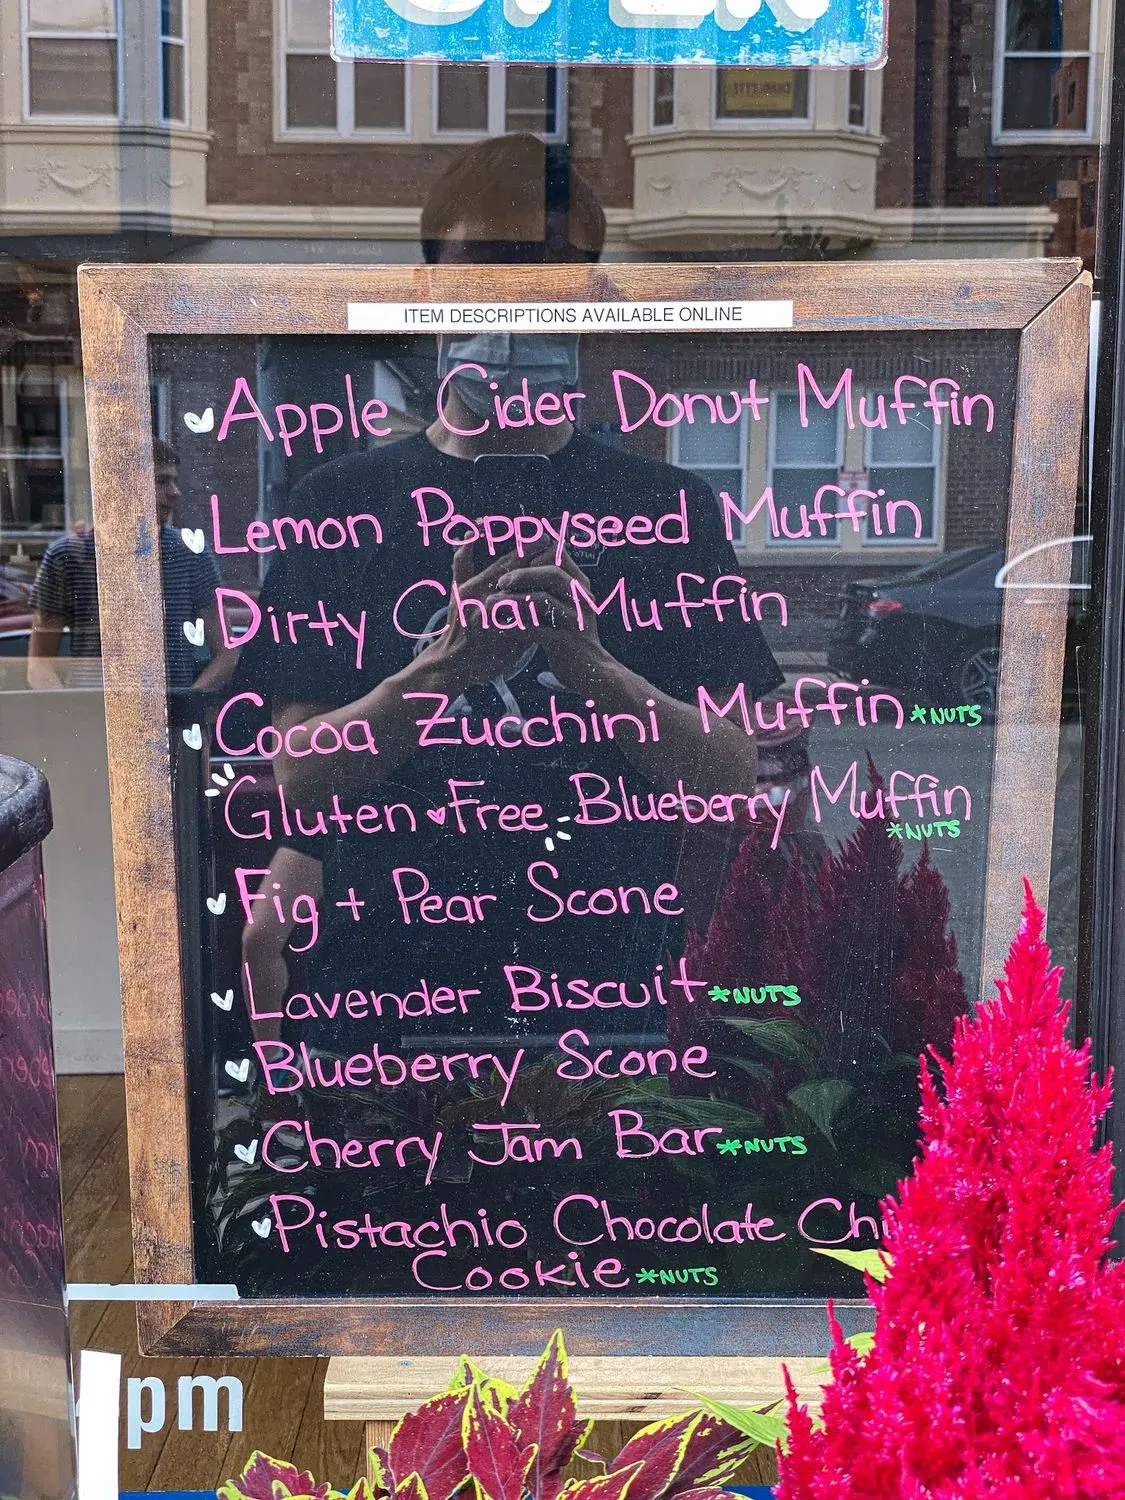 OPEN
ITEM DESCRIPTIONS AVAILABLE ONLINE
Apple Cider Donut Muffin
Lemon Poppyseed Muffin
Dirty Chai Muffin
Cocoa Zucchini Muffin *NUTS
Gluten Free Blueberry Muffin
*NUTS
Fig + Pear Scone
Lavender Biscuit *NUTS
Blueberry Scone
Cherry Jam Bar *NUTS
Pistachio Chocolate Chi
Cookie *NUTS
pm